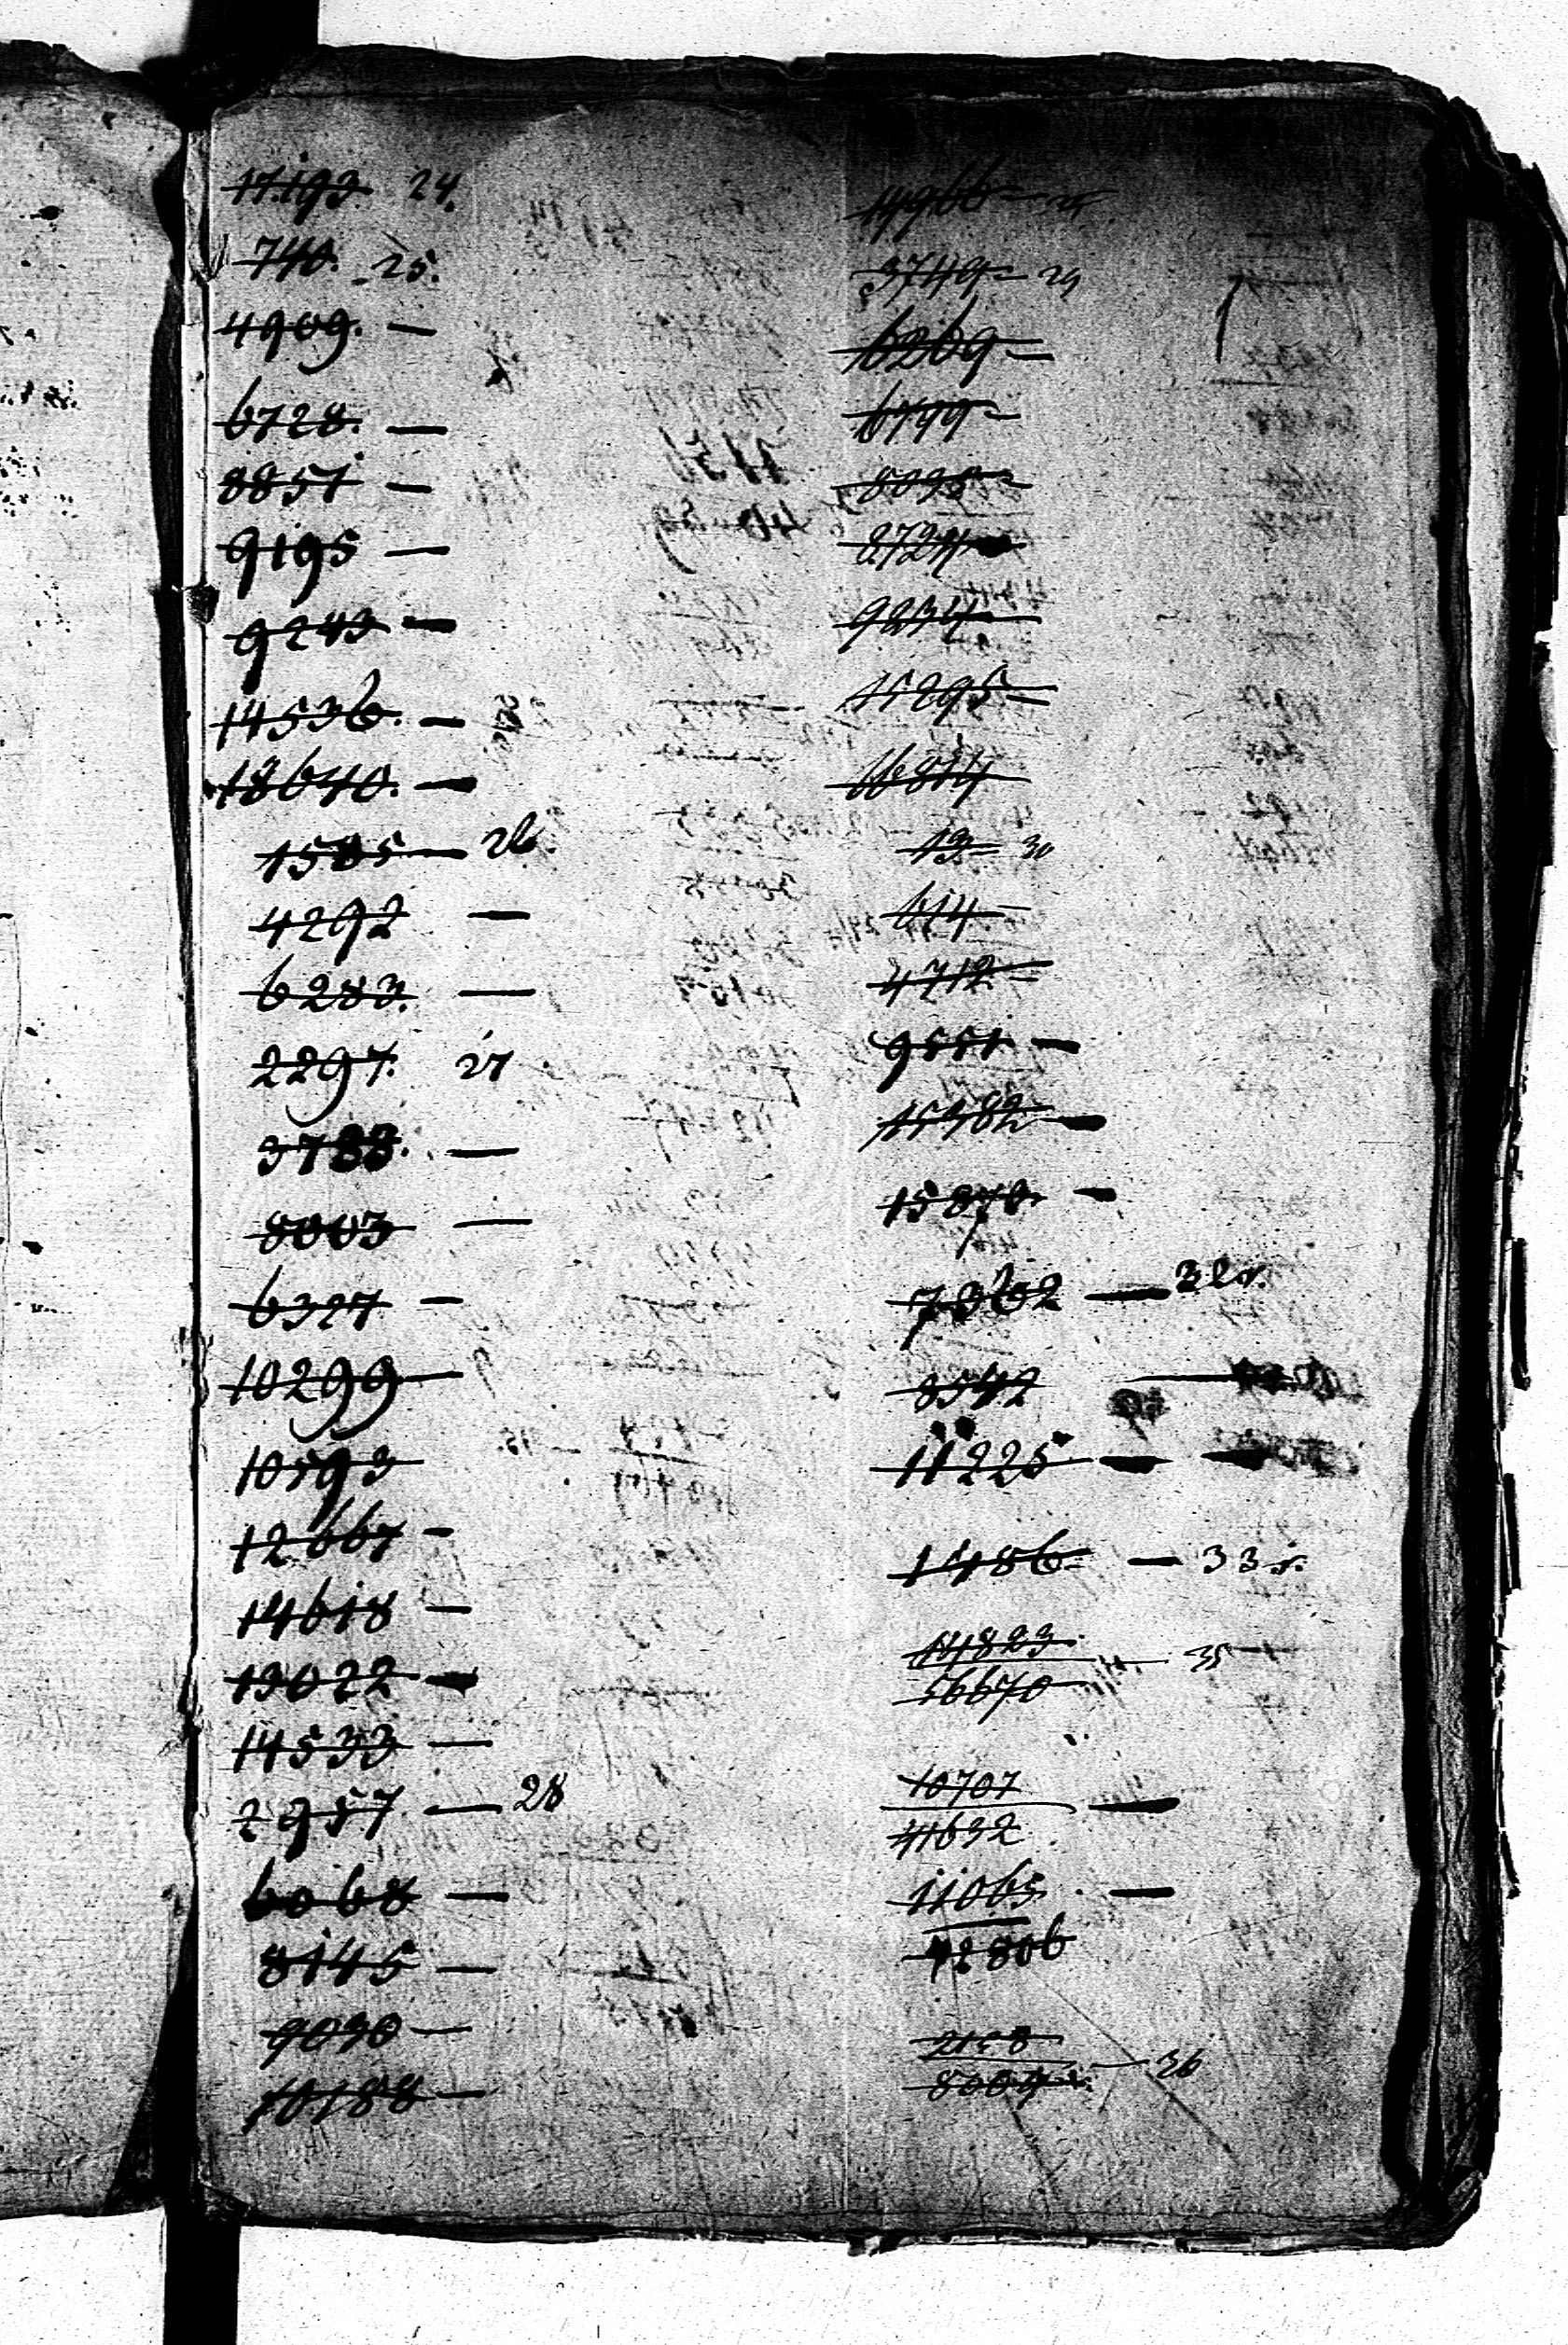 17193. 24.
740. 25.
4909. —
6728. —
8857 —
9195 —
9243 —
14536. —
18640. —
1585 — 26.
4292 —
6283. —
2297. 27
3788. —
8003 —
6327 —
10299 —
10593
12667 —
14618 —
13022 —
14533 —
2957. — 28
6068 —
8145 —
9030 —
10188 —
14966 —
3749 — 29
6269 —
6799 —
8095 —
8724 —
9234 —
15295 —
16814
13 — 30
614 —
4712 —
9551 —
15982 —
15870. —
7362 —
8542 —
11225 — —
1486 — 33
14823. — 35 —
56670
10707 —
41632
11065. —
42806
— 36